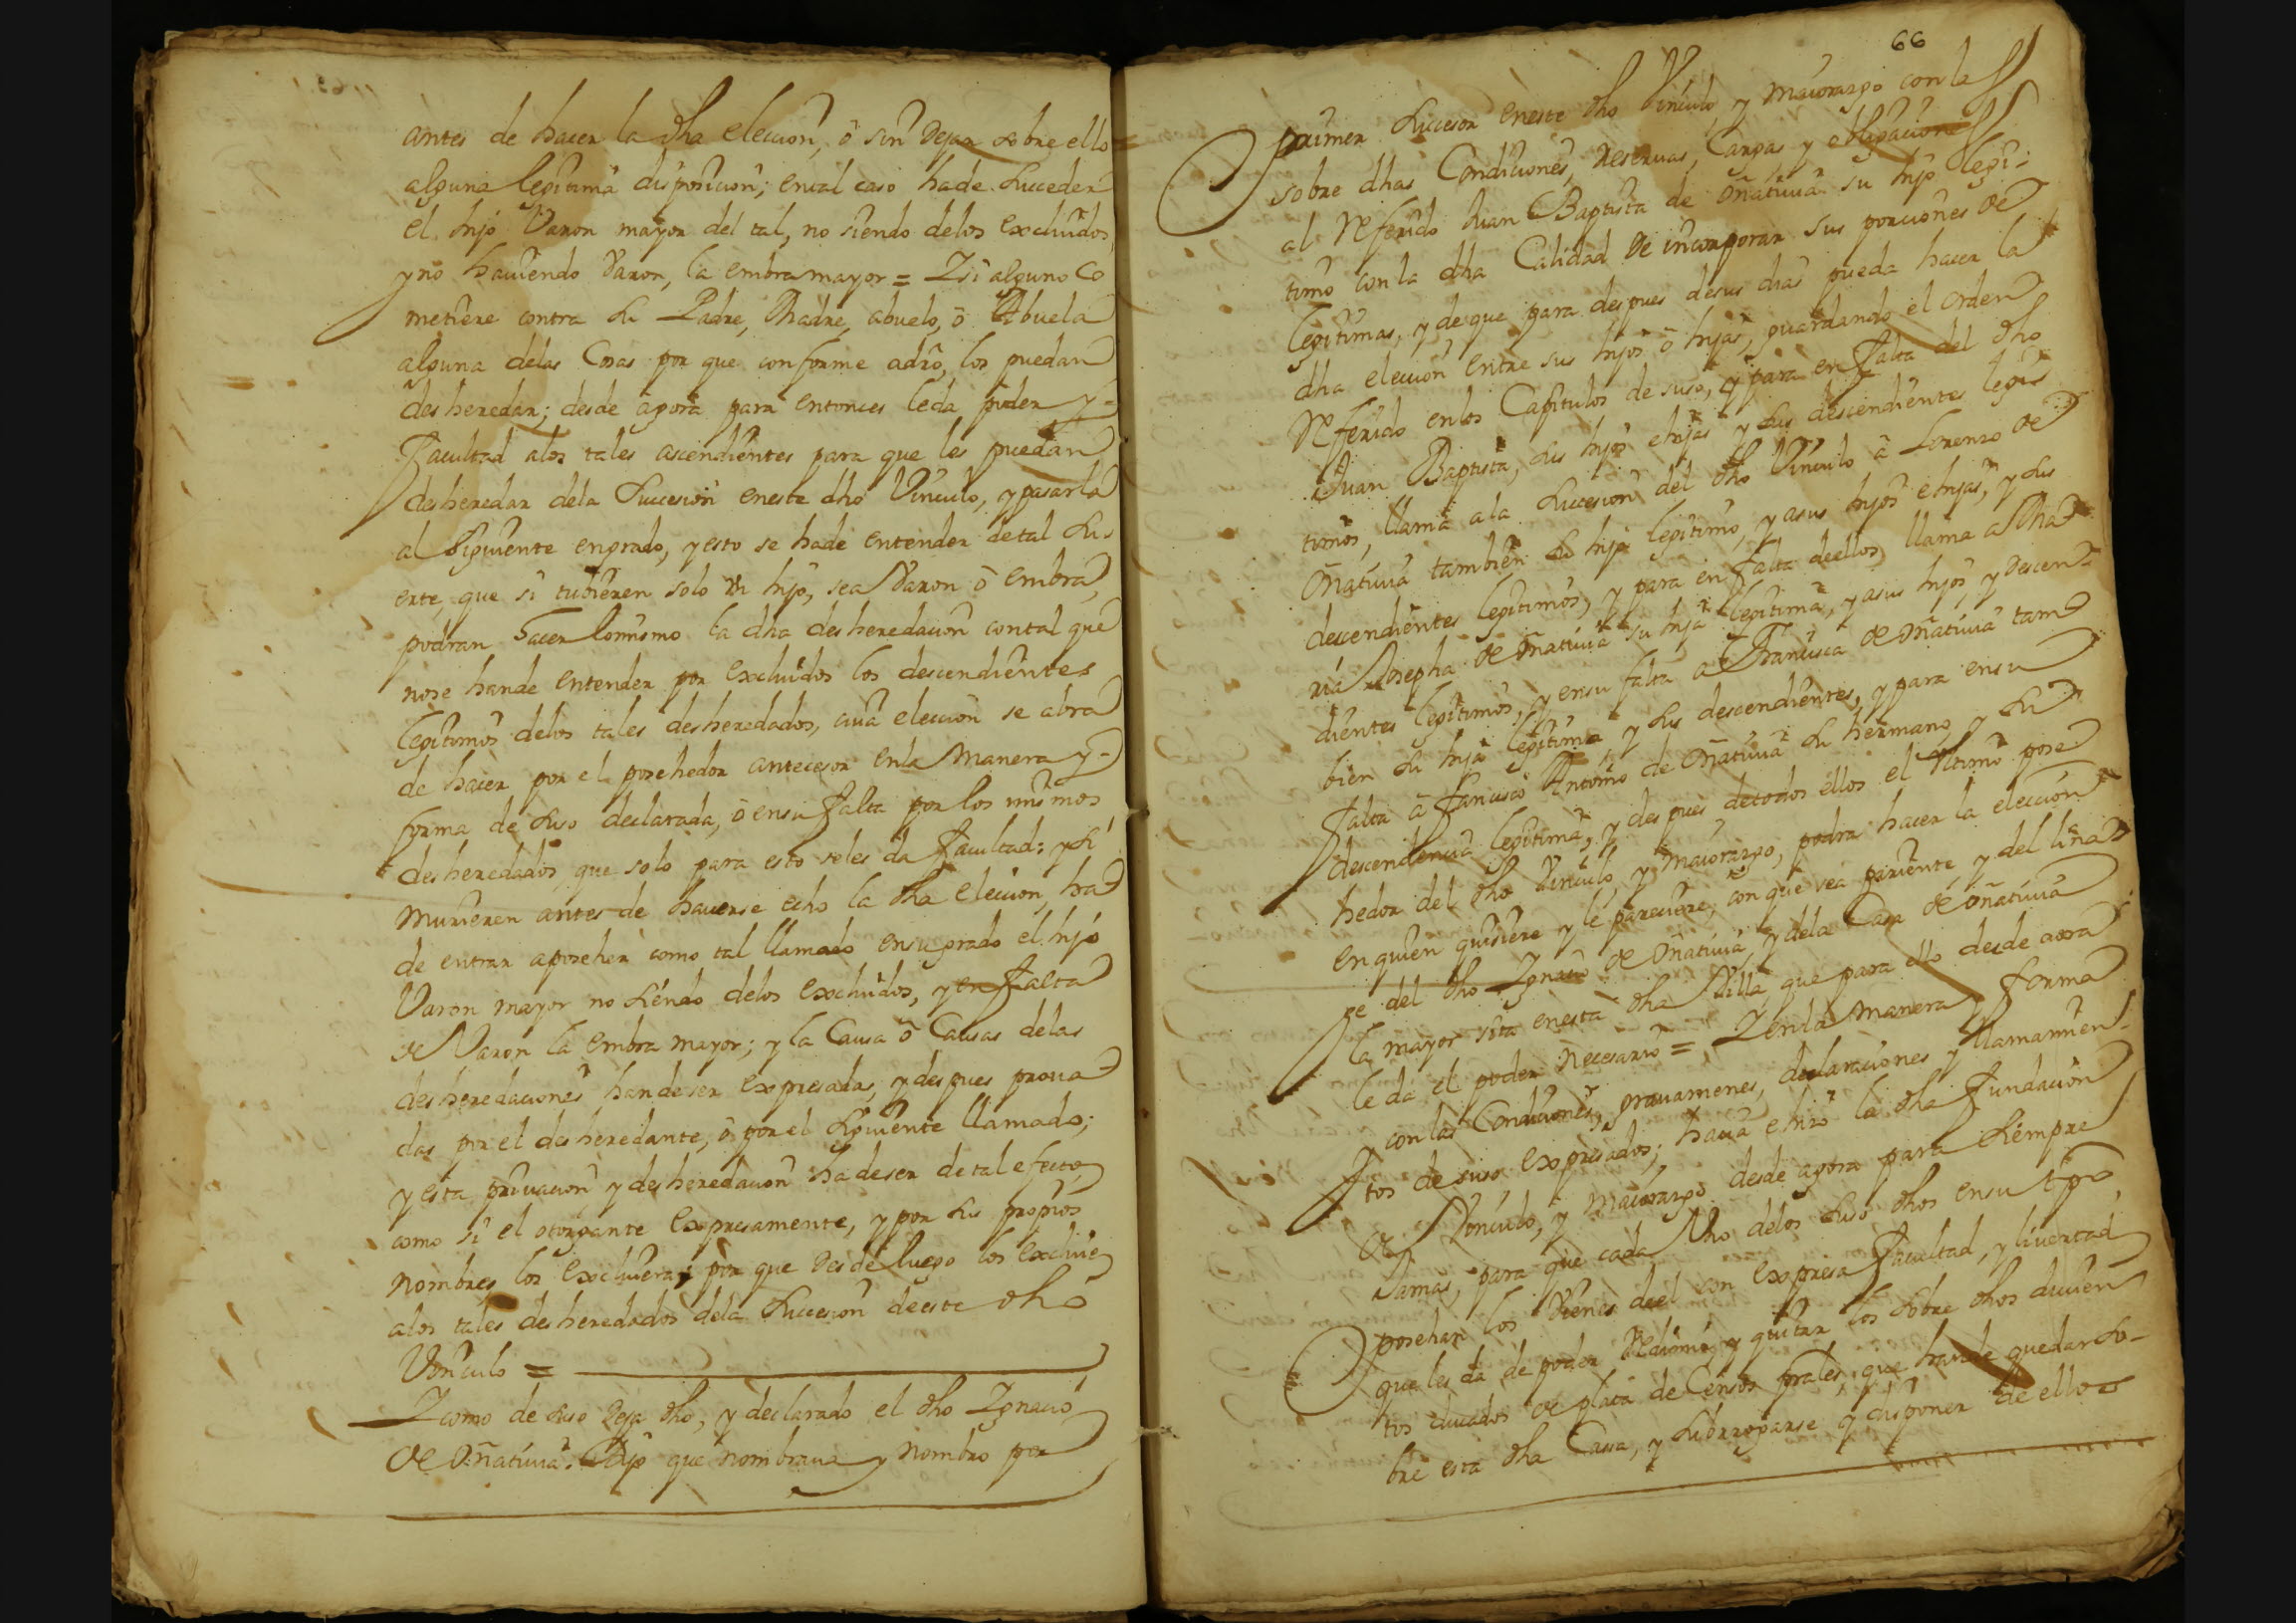 antes de hacer la dha eleccion, ô sin dejar sobre ello
alguna legitima disposicion; en tal caso hade succeder
el hijo Varon mayor del tal, no siendo delos excluidos,
y no haviendo Varon, la embra mayor = Y si alguno Co
metiere contra su Padre, Madre, abuelo, ô Abuela
alguna delas Cosas por que conforme adro, los puedan
desheredar; desde agora para entonces leda poder y-
Facultad alos tales ascendientes para que les puedan
desheredar dela Succesion eneste dho Vinculo, y pasarla
al Siguiente engrado, y esto se hade entender detal Su-
erte, que si tubieren solo un hijo, sea Varon ô embra,
podran hacer lomismo la dha desheredacion contal que
nose hande entender por excluidos los descendientes
legitimos delos tales desheredados, cuia eleccion se abra
de hacer por el posehedor antecesor enla Manera y-
forma de suso declarada, ô ensu falta por los mismos
desheredados, que solo para esto seles da facultad: y si
murieren antes de haverse echo la dha eleccion, ha
de entrar aposeher como tal llamado ensugrado el hijo
Varon mayor no siendo delos excluidos, y en falta
de Varon la embra mayor; y la Causa ô Causas delas
desheredaciones hande ser expresadas, y despues prova
das por el desheredante, ô por el siguiente llamado;
y esta privacion y desheredacion ha deser de tal efecto,
como si el otorgante expresamente, y por sus propios
nombres los excluiera; por que desde luego los excluie
alos tales desheredados dela Succesion deeste dho
Vinculo =
Y como de suso deja dho, y declarado el dho Ygnacio
de Oñativia. Dijo que nombrava y nombro por
66
primer Succesor eneste dho Vinculo y Maiorazgo con la
sobre dhas Condiciones, Reservas, Cargas y obligaciones
al Referido Juan Baptista de Oñativia su hijo legi-
timo con la dha Calidad de incorporar sus porciones de
legitimas, y de que para despues desus dias pueda hacer la
dha eleccion entre sus hijos ô hijas, guardando el orden
Referido enlos Capitulos de suso, y para en falta del dho
Juan Baptista, sus hijos e hijas y sus descendientes legi-
timos, llama ala Succesion del dho Vinculo â Lorenzo de
Oñativia tambien su hijo legitimo, y asus hijos e hijas, y sus
descendientes legitimos, y para en falta deellos, llama a Ma
ria Josepha de Oñativia su hija legitima, y asus hijos, y descen-
dientes legitimos, y ensu falta a Francisca de Oñativia tam
bien su hija legitima y sus descendientes, y para ensu
falta â Francisco Antonio de Oñativia su hermano, y su
descendencia legitima, y despues detodos ellos el ultimo pose
hedor del dho Vinculo y Maiorazgo, podra hacer la eleccion
enquien quisiere y le pareciere, con que sea pariente y del lina
ge del dho Ygnacio de Oñativia, y dela Casa de Oñativia
la mayor sita enesta dha Villa que para ello desde aora
le da el poder necesario = Y enla manera y forma
con las Condiciones, gravamenes, declaraciones y llamamien-
tos de suso expresados; hacia e hizo la dha fundacion
de Vinculo, y Maiorazgo desde agora para siempre
Jamas, para que cada uno delos suso dhos ensu tpo,
posehan los Vienes deel con expresa facultad, y livertad
que les da de poder Redimir y quitar los sobre dhos ducien
tos ducados de plata de Censos prales, que hande quedar so-
bre esta dha Casa, y subrrogarse y disponer de ellos